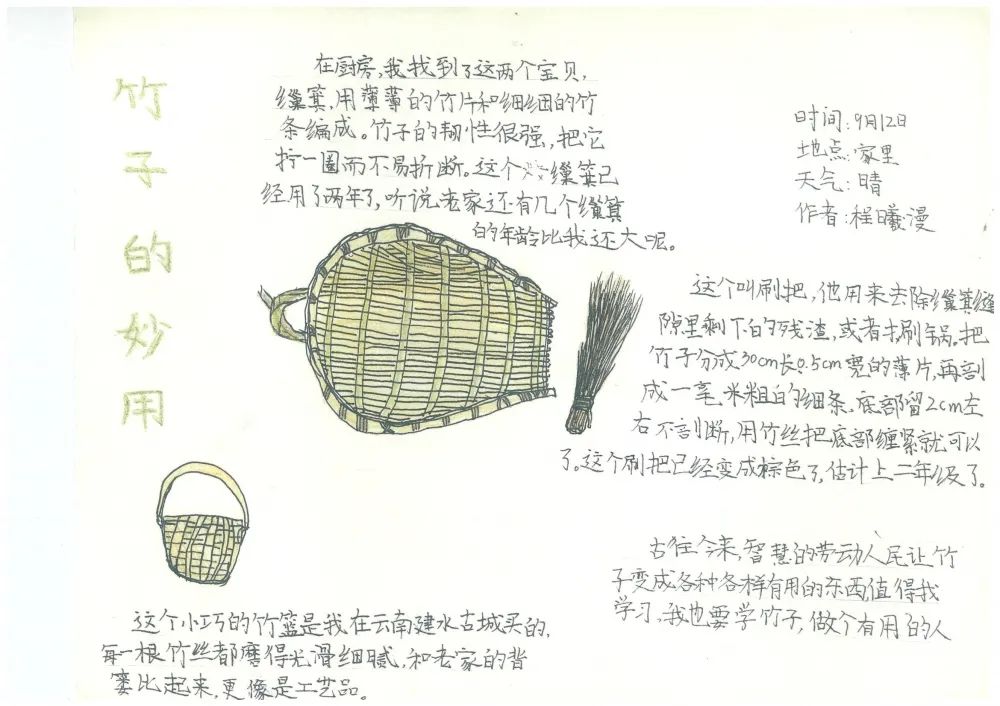 竹子的妙用
在厨房,我找到了这两个宝贝,
筲箕,用薄薄的竹片和细细的竹
条编成。竹子的韧性很强,把它
拧一圈而不易折断。这个筲箕已
经用了两年了,听说老家还有几个筲箕
的年龄比我还大呢。
时间:9月12日
地点:家里
天气:晴
作者:程曦漫
这个叫刷把,他用来去除筲箕缝
隙里剩下的残渣,或者扫刷锅。把
竹子分成30cm长0.5cm宽的薄片,再剖
成一毫米粗的细条,底部留2cm左
右不剖断,用竹丝把底部缠紧就可以
了。这个刷把已经变成棕色了,估计上二年级了。
古往今来,智慧的劳动人民让竹
子变成各种各样有用的东西值得我
学习,我也要学竹子,做个有用的人
这个小巧的竹篮是我在云南建水古城买的,
每一根竹丝都磨得光滑细腻,和老家的背
篓比起来,更像是工艺品。